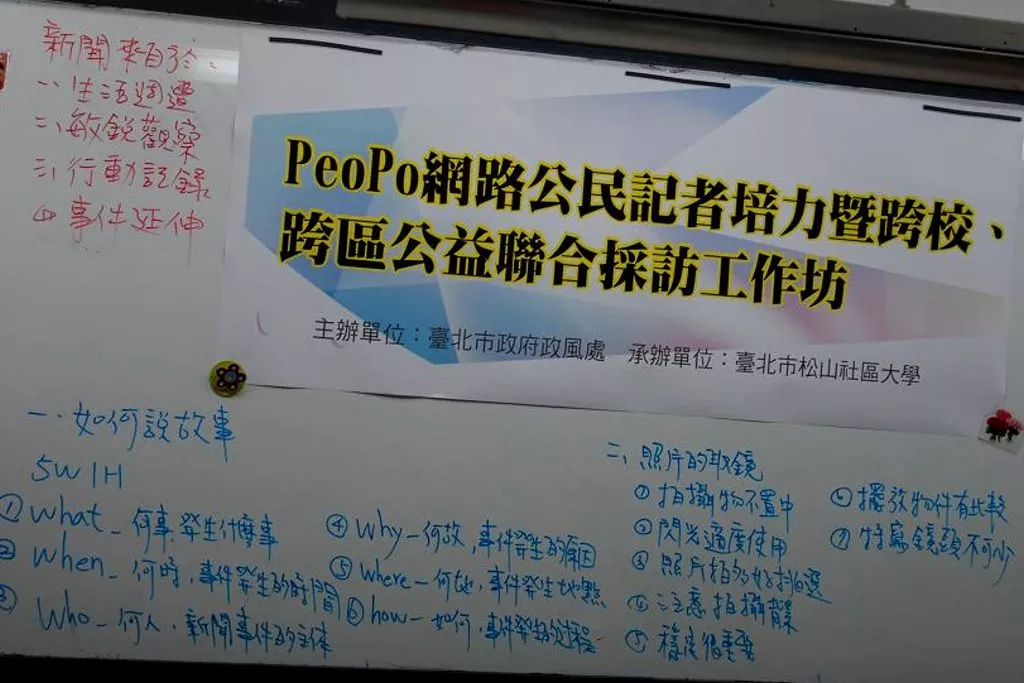 新聞來自於：
一、生活週遭
二、敏銳觀察
三、行動記錄
四、事件延伸
PeoPo網路公民記者培力暨跨校、
跨區公益聯合採訪工作坊
主辦單位：臺北市政府政風處　承辦單位：臺北市松山社區大學
一、如何說故事
5W1H
① what－何事，發生什麼事
② when－何時，事件發生的時間
③ who－何人，新聞事件的主体
④ why－何故，事件發生的原因
⑤ where－何地，事件發生地點
⑥ how－如何，事件發生的過程
二、照片的取鏡
① 拍攝物不置中
② 閃光適度使用
③ 照片拍多好挑選
④ 注意拍攝背景
⑤ 穩定很重要
⑥ 擺放物件有比較
⑦ 特寫鏡頭不可少